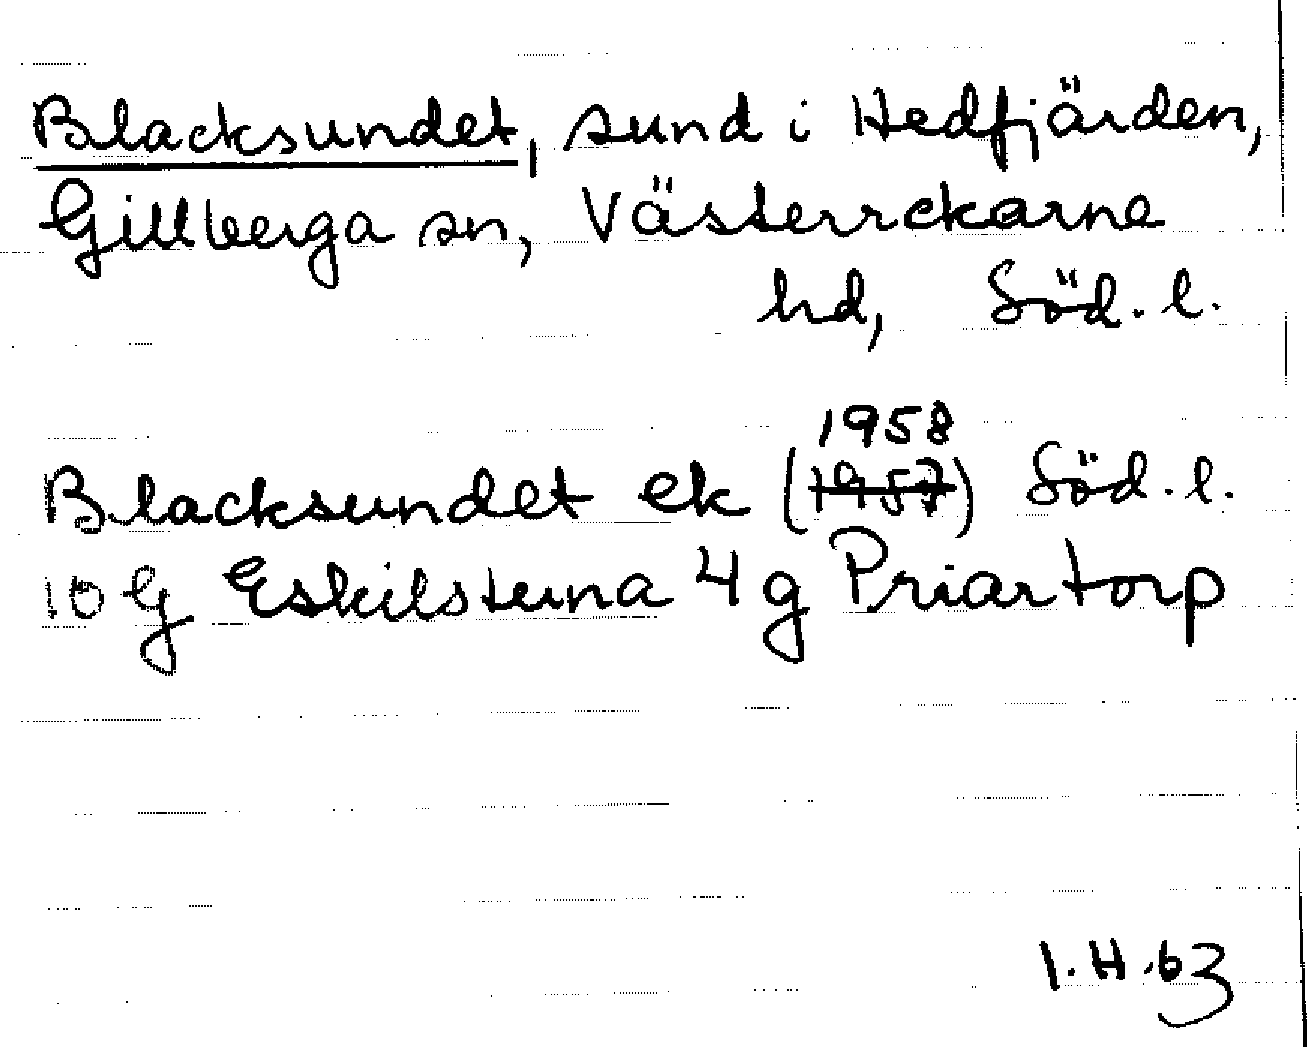 Blacksundet, sund i Hedfjärden,
Gillberga sn, Västerrekarne
hd, Söd. l.
1958
Blacksundet ek (1957) Söd. l.
10 G Eskilstuna 4 g Priartorp
I. H. 63